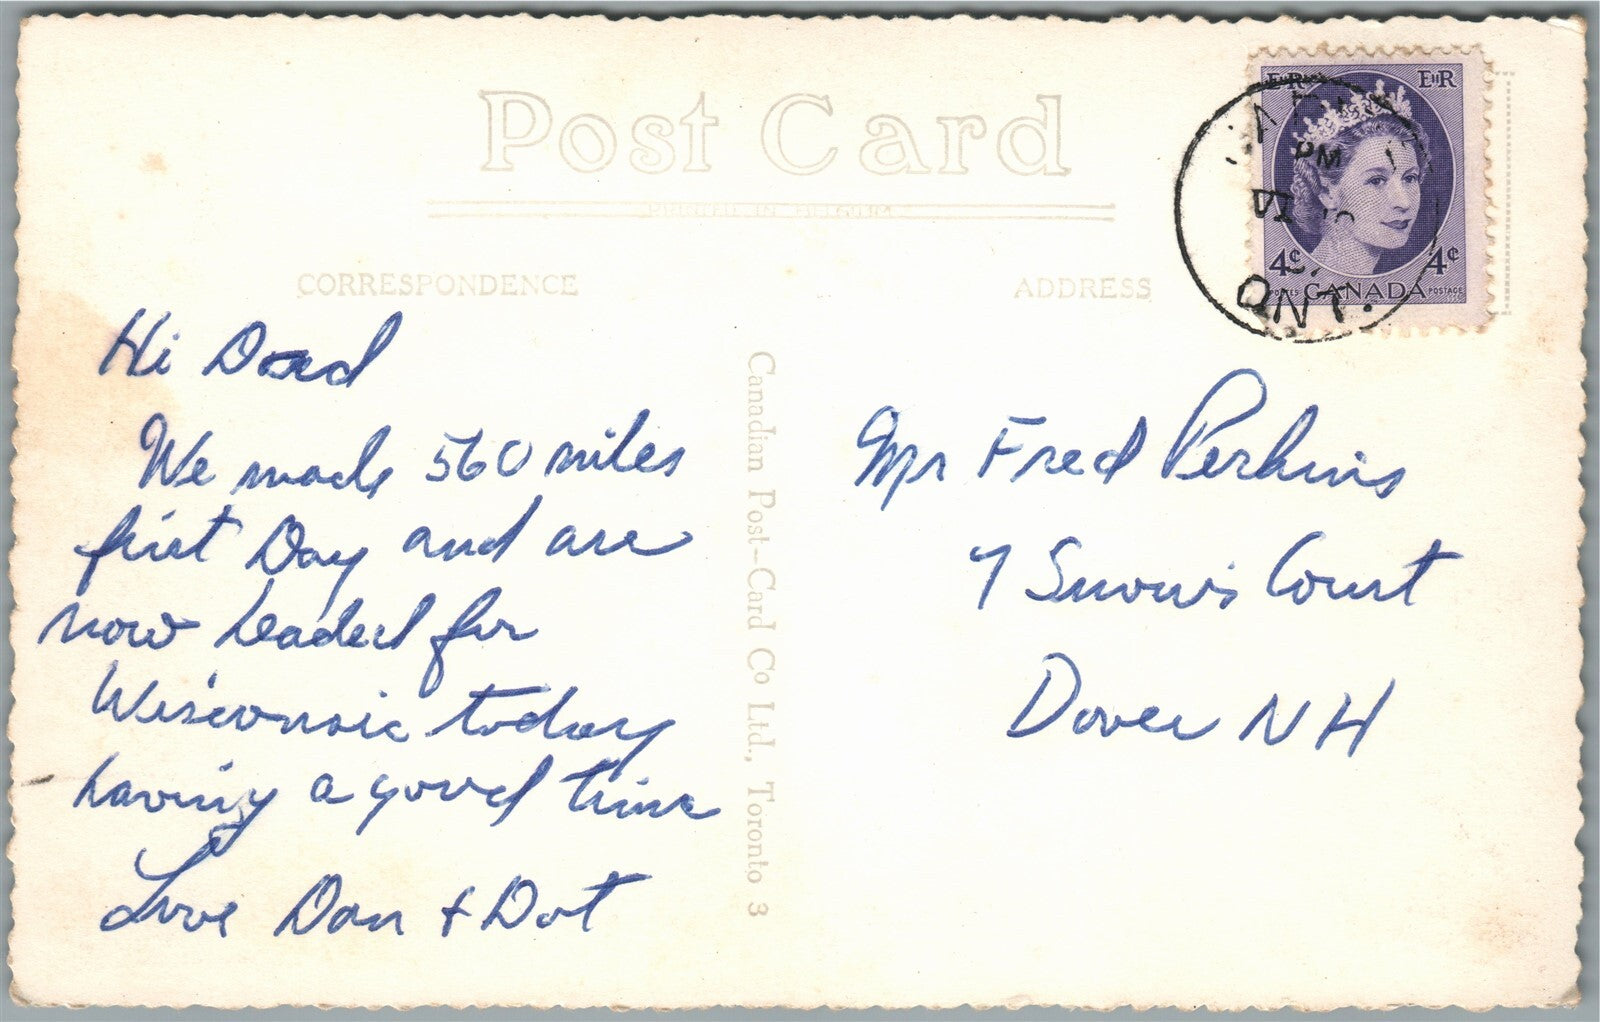 Post Card
PRINTED IN BELGIUM
CORRESPONDENCE
ADDRESS
E II R
E II R
PM
4¢
4¢
CANADA
POSTES
POSTAGE
ONT.
Hi Dad
We made 560 miles
first Day and are
now headed for
Wisconsin today
having a good time
Love Don & Dot
Canadian Post-Card Co Ltd., Toronto 3
Mr Fred Perkins
7 Snows Court
Dover NH